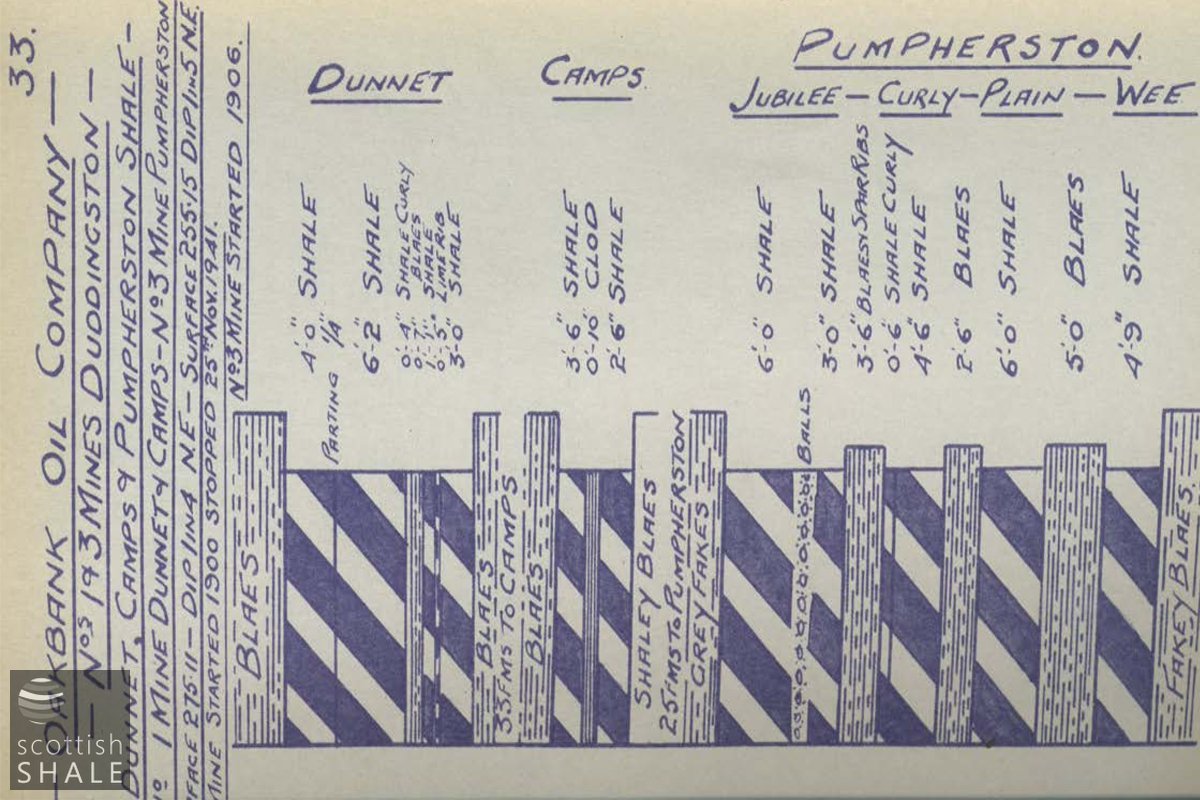 33.
— OAKBANK OIL COMPANY —
— Nos 1 & 3 MINES DUDDINGSTON —
DUNNET, CAMPS & PUMPHERSTON SHALE —
No 1 MINE DUNNET & CAMPS - No 3 MINE PUMPHERSTON
FACE 275·11 — DIP 1 IN 4 N.E — SURFACE 255·15 DIP 1 IN 5 N.E.
MINE STARTED 1900 STOPPED 25TH NOV. 1941.
No 3 MINE STARTED 1906.
DUNNET
CAMPS.
PUMPHERSTON.
JUBILEE — CURLY — PLAIN — WEE
4'·0" SHALE
PARTING 1/4"
6'·2" SHALE
0'·4" SHALE CURLY
0'·7" BLAES
1'·1" SHALE
0'·5" LIMERIB
3'·0" SHALE
3'·6" SHALE
0'·10" CLOD
2'·6" SHALE
6'·0" SHALE
BALLS
3'·0" SHALE
3'·6" BLAES & SPAR RIBS
0'·6" SHALE CURLY
4'·6" SHALE
2'·6" BLAES
6'·0" SHALE
5'·0" BLAES
4'·9" SHALE
BLAES
BLAES
35 FMS TO CAMPS
BLAES
SHALEY BLAES
25 FMS TO PUMPHERSTON
GREY FAKES
FAKEY BLAES.
scottish
SHALE